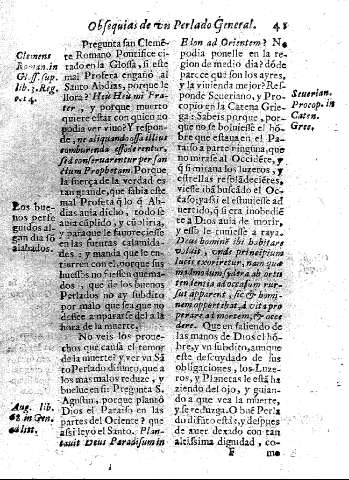 Obsequias de vn Perlado General. 43
Clemens
Roman. in
Gloss. sup.
lib. 3. Reg.
c. 14.
Los bue-
nos perse
guidos al-
gan dia sõ
alabados.
Aug. lib.
8 in Gen.
ad litt.
Pregunta san Cleme-
te Romano Pontifice ci
tado en la Glossa, si este
mal Profeta engañò al
Santo Abdias, porque le
llora? Heu Heu mi Fra-
ter, y porque muerto
quiere estar con quien no
podia ver viuo? Y respon-
de, ne aliquando ossa illius
comburenda essent
sed conseruarentur per san
ctum Prophetam. Porque
la fuerça de la verdad es
tan grande, que sabia este
mal Profeta q̃ lo q̃ Ab-
dias auia dicho, todo se
auia cũplido, y cũpliria,
y para que le fauoreciesse
en las futuras calamida-
des: y manda que lo en-
tierren con el, porque sus
huessos no fuessen quema-
dos, que de los buenos
Perlados no ay subdito
por malo que sea, que no
dessee ampararse del a la
hora de la muerte.
No veis los proue-
chos que causa el temor
de la muerte? y ver vn Sã
to Perlado difunto, que a
los mas malos reduze, y
buelue en si? Pregunta S.
Agustin, porque plantò
Dios el Paraiso en las
partes del Oriente? que
assi leyò el Santo. Plan-
tauit Deus Paradisum in
Edon ad Orientem? No
podia ponelle en la re-
gion de medio dia? dõde
parece que son los ayres,
y la viuienda mejor? Res
ponde Seueriano, y Pro-
copio en la Catena Grie-
ga: Sabeis porque, por-
que no se boluiesse el hõ-
bre que estaua en el Pa-
raiso a parte ninguna, que
no mirasse al Occidẽte, y
q̃ si miraua los luzeros, y
estrellas resplãdeciẽtes,
viesse ibã buscãdo el Oc-
caso; y assi el estuuiesse ad
uertido, q̃ si era inobediẽ
te a Dios auia de morir,
y esso le tuuiesse a raya.
Deus homine ibi habitare
voluit, vnde principium
lucis exoriretur, nam que
ad modum sydera ab ortu
tendentia ad occasum rur-
sus apparent, sic & homi-
nem oppertebat, à vita pro
perare ad mortem, & occi
dere. Que en saliendo de
las manos de Dios el hõ-
bre, y vn subdito, aunque
este descuydado de sus
obligaciones, los Luze-
ros, y Planetas le està ha
ziendo del ojo, y guian-
do a que vea la muerte,
y se reduzga. O buẽ Perla
do difunto estàs, y despues
de auer dexado con tan
altissima dignidad, co-
F mo
Seuerian.
Procop. in
Caten.
Grec.